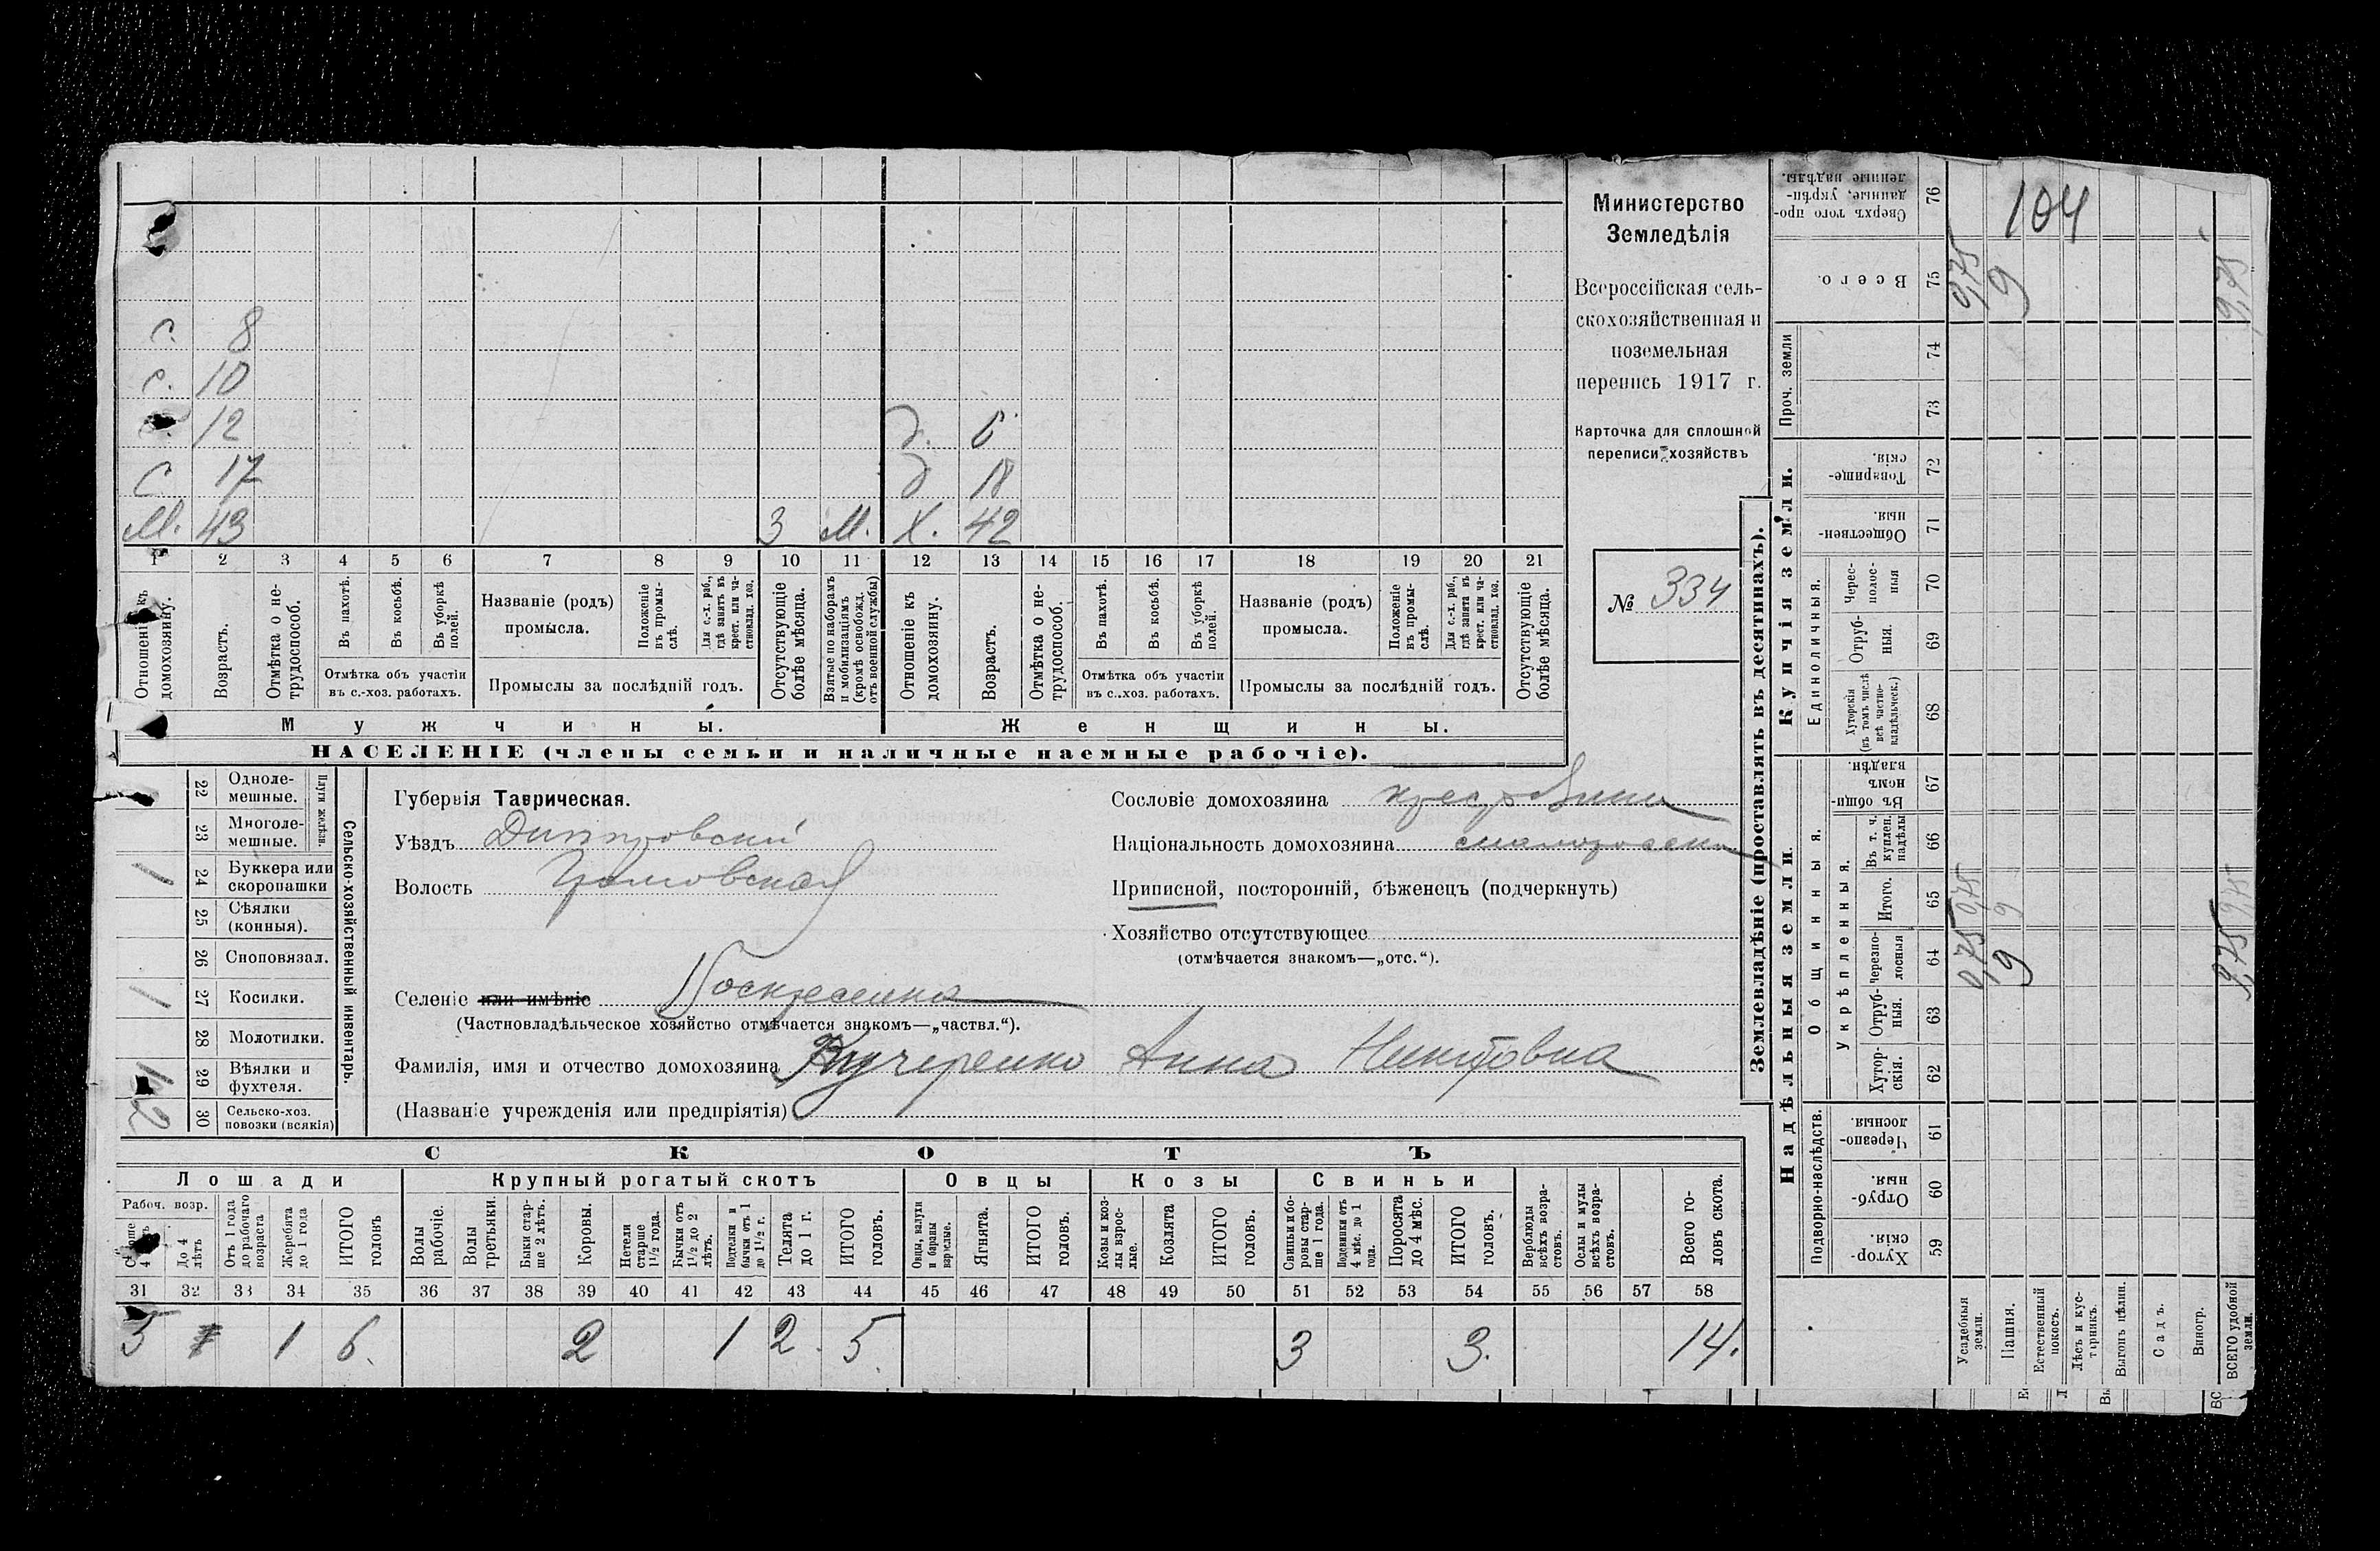 с. 8
с. 10
12
с 17 д. 6
д 18
М. 43 3 М. Х. 42
1 2 3 4 5 6 7 8 9 10 11 12 13 14 15 16 17 18 19 20 21
Отношеніе къ домохозяину.
Возрастъ.
Отмѣтка о не-трудоспособ.
Въ пахотѣ.
Въ косьбѣ.
Въ уборкѣ полей.
Отмѣтка объ участіи
въ с.-хоз. работахъ.
Названіе (родъ)
промысла.
Положеніе въ промы-слѣ.
Для с.-х. раб., гдѣ занятъ въ крест. или ча-стновлад. хоз.
Промыслы за послѣдній годъ.
Отсутствующіе болѣе мѣсяца.
Взятые по наборамъ и мобилизаціямъ (кромѣ освобожд. отъ военной службы)
Отношеніе къ домохозяину.
Возрастъ.
Отмѣтка о не-трудоспособ.
Въ пахотѣ.
Въ косьбѣ.
Въ уборкѣ полей.
Отмѣтка объ участіи
въ с.-хоз. работахъ.
Названіе (родъ)
промысла.
Положеніе въ промы-слѣ.
Для с.-х. раб., гдѣ занята въ крест. или ча-стновлад. хоз.
Промыслы за послѣдній годъ.
Отсутствующіе болѣе мѣсяца.
Мужчины. Женщины.
НАСЕЛЕНІЕ (члены семьи и наличные наемные рабочіе).
Министерство
Земледѣлія
Всероссійская сель-
скохозяйственная и
поземельная
перепись 1917 г.
Карточка для сплошной
переписи хозяйствъ
№ 334
22 Одноле-мешные.
23 Многоле-мешные.
Плуги желѣзн.
1 24 Буккера или скоропашки
25 Сѣялки (конныя).
26 Сноповязал.
1 27 Косилки.
28 Молотилки.
29 Вѣялки и фухтеля.
2 30 Сельско-хоз. повозки (всякія)
Сельско-хозяйственный инвентарь.
Губернія Таврическая.
Уѣздъ Днепровский
Волость
Селеніе или имѣніе Воскресенка
(Частновладѣльческое хозяйство отмѣчается знакомъ—„частвл.“).
Фамилія, имя и отчество домохозяина Кучеренко Анна Никитовна
(Названіе учрежденія или предпріятія)
Сословіе домохозяина
Національность домохозяина малоросска
Приписной, посторонній, бѣженецъ (подчеркнуть)
Хозяйство отсутствующее
(отмѣчается знакомъ—„отс.“).
СКОТЪ
Лошади Крупный рогатый скотъ Овцы Козы Свиньи
Рабоч. возр.
Старше 4 лѣтъ
До 4 лѣтъ
Отъ 1 года до рабочаго возраста
Жеребята до 1 года
ИТОГО головъ
Волы рабочіе.
Волы третьяки.
Быки стар-ше 2 лѣтъ.
Коровы.
Нетели старше 1½ года.
Бычки отъ 1½ до 2 лѣтъ.
Подтелки и бычки отъ 1 до 1½ г.
Телята до 1 г.
ИТОГО головъ.
Овцы, валухи и бараны взрослые.
Ягнята.
ИТОГО головъ.
Козы и коз-лы взрос-лые.
Козлята
ИТОГО головъ.
Свиньи и бо-ровы стар-ше 1 года.
Подсвинки отъ 4 мѣс. до 1 года.
Поросята до 4 мѣс.
ИТОГО головъ.
Верблюды всѣхъ возра-стовъ.
Ослы и мулы всѣхъ возра-стовъ.
Всего го-ловъ скота.
31 32 33 34 35 36 37 38 39 40 41 42 43 44 45 46 47 48 49 50 51 52 53 54 55 56 57 58
5 1 6. 2 1 2. 5. 3 3. 14.
Землевладѣніе (проставлять въ десятинахъ).
Купчія земли.
Надѣльныя земли.
Сверхъ того про-данные, укрѣп-ленные надѣлы. 76 104
Всего. 75 0,75 9 9,75
Проч. земли 74
73
Товарище-скія. 72
Обществен-ныя. 71
Единоличныя.
Черес-полос-ныя 70
Отруб-ныя. 69
Хуторскія (въ томъ числѣ всѣ частно-владѣльческ.) 68
Общинныя.
Въ общин-номъ владѣн. 67
Укрѣпленныя.
Въ т. ч. куплен. надѣлы 66
Итого. 65 0,75 9 9,75
Черезпо-лосныя 64 0,75 9 9,75
Отруб-ныя. 63
Хутор-скія. 62
Подворно-наслѣдств.
Черезпо-лосныя. 61
Отруб-ныя. 60
Хутор-скія. 59
Усадебныя земли.
Пашня.
Естественный покосъ.
Лѣсъ и кус-тарникъ.
Выгонъ цѣлин.
Садъ.
Виногр.
ВСЕГО удобной земли.